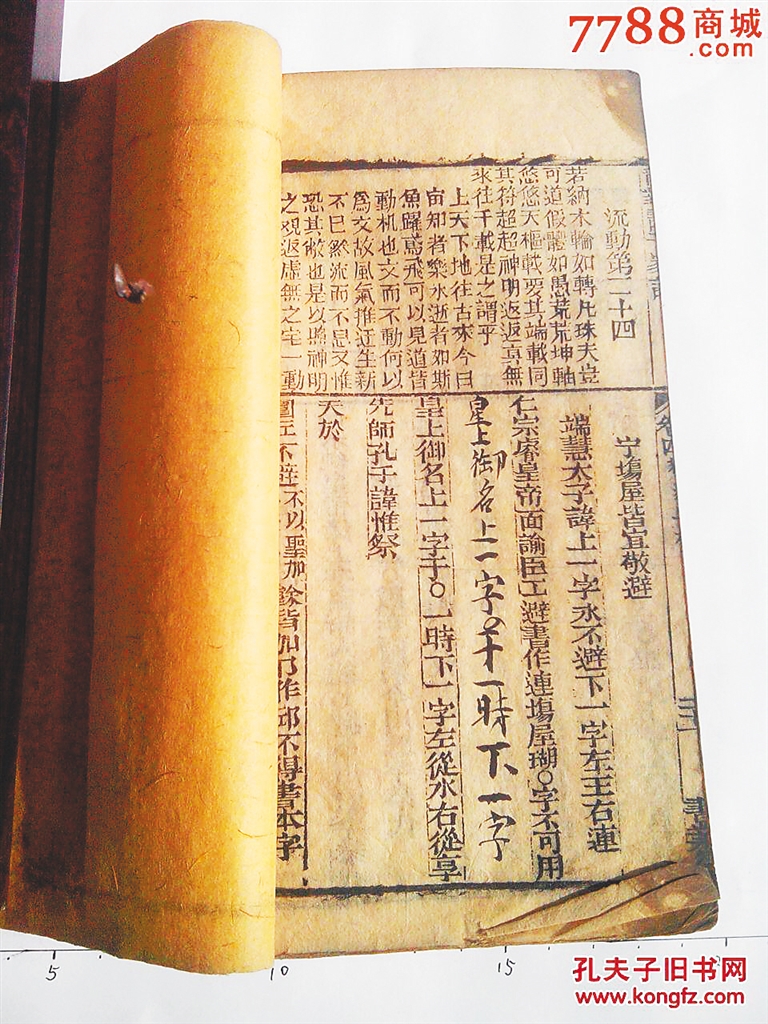 7788商城
.com
流動第二十四
若納水輪如轉凡珠夫豈
可道假體如愚荒荒坤軸
悠悠天樞載要其端載同
其符超超神明返返冥無
來往千載是之謂乎
上天下地往古來今日
宙知者樂水逝者如斯
魚躍鳶飛可以見道皆
動机也文而不動何以
爲文故風氣推迁生新
不已然流而不息又惟
恐其敝也是以歸神明
之觀返虛無之宅一動
宁塲屋皆宜敬避
端慧太子諱上一字永不避下一字左王右連
仁宗睿皇帝面諭臣工避書作連塲屋瑚○字不可用
皇上御名上一字○羊一時下一字
皇上御名上一字于○一時下一字左從水右從享
先師孔子諱惟祭
天於
圜丘不避不以聖加餘皆加阝作邱不得書本字
5
10
15
孔夫子旧书网
www.kongfz.com